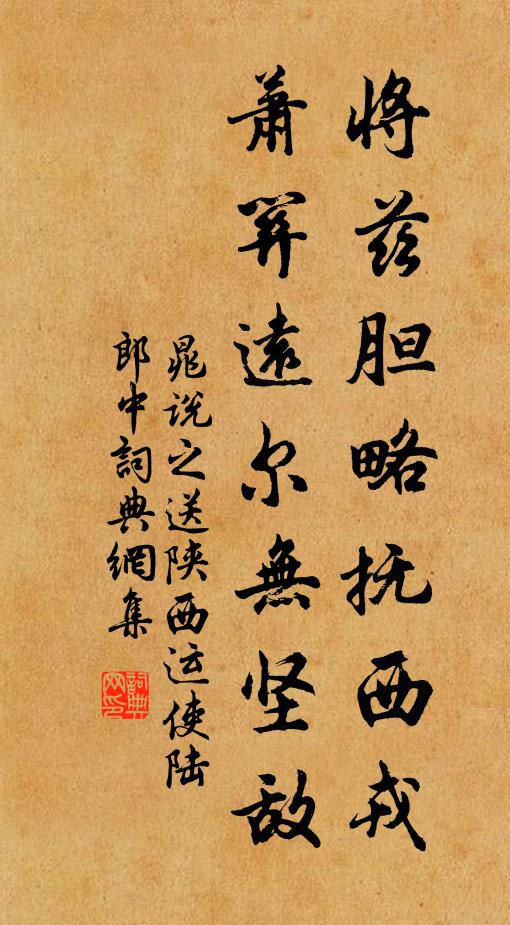 将兹胆略抚西戎
萧算远尔無坚敌
晁说之送陕西运使陆
郎中詞典網集